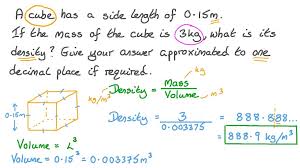 A cube has a side length of 0.15m.
If the mass of the cube is 3kg, what is its
density? Give your answer approximated to one
decimal place if required.
kg
kg/m³
Density = Mass
Volume
m³
0.15m
Density = 3
0.003375
= 888.888...
= 888.9 kg/m³
Volume = L³
Volume = 0.15³ = 0.003375m³